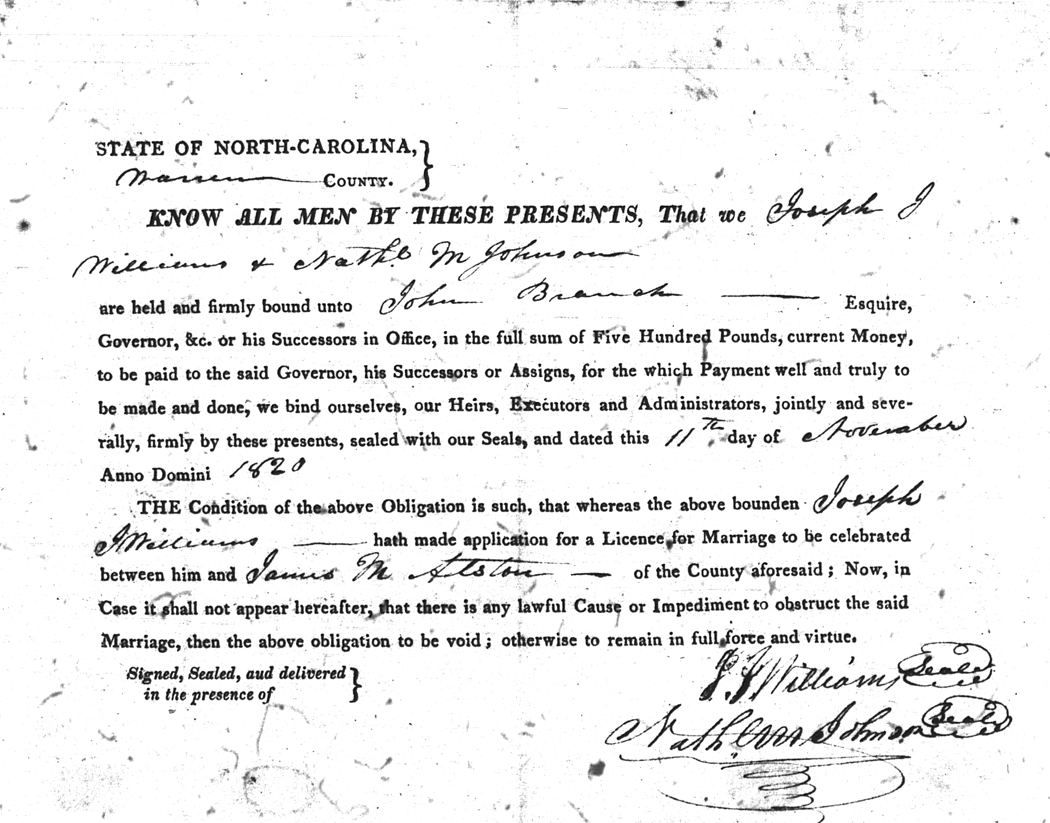 STATE OF NORTH-CAROLINA, }
Warren County.
KNOW ALL MEN BY THESE PRESENTS, That we Joseph J
Williams & Nathl. M Johnson
are held and firmly bound unto John Branch Esquire,
Governor, &c. or his Successors in Office, in the full sum of Five Hundred Pounds, current Money,
to be paid to the said Governor, his Successors or Assigns, for the which Payment well and truly to
be made and done, we bind ourselves, our Heirs, Executors and Administrators, jointly and seve-
rally, firmly by these presents, sealed with our Seals, and dated this 11th day of November
Anno Domini 1820
THE Condition of the above Obligation is such, that whereas the above bounden Joseph
J Williams hath made application for a Licence for Marriage to be celebrated
between him and James M Alston of the County aforesaid; Now, in
Case it shall not appear hereafter, that there is any lawful Cause or Impediment to obstruct the said
Marriage, then the above obligation to be void; otherwise to remain in full force and virtue.
Signed, Sealed, aud delivered }
in the presence of
J J Williams Seal
Nathl M Johnson Seal